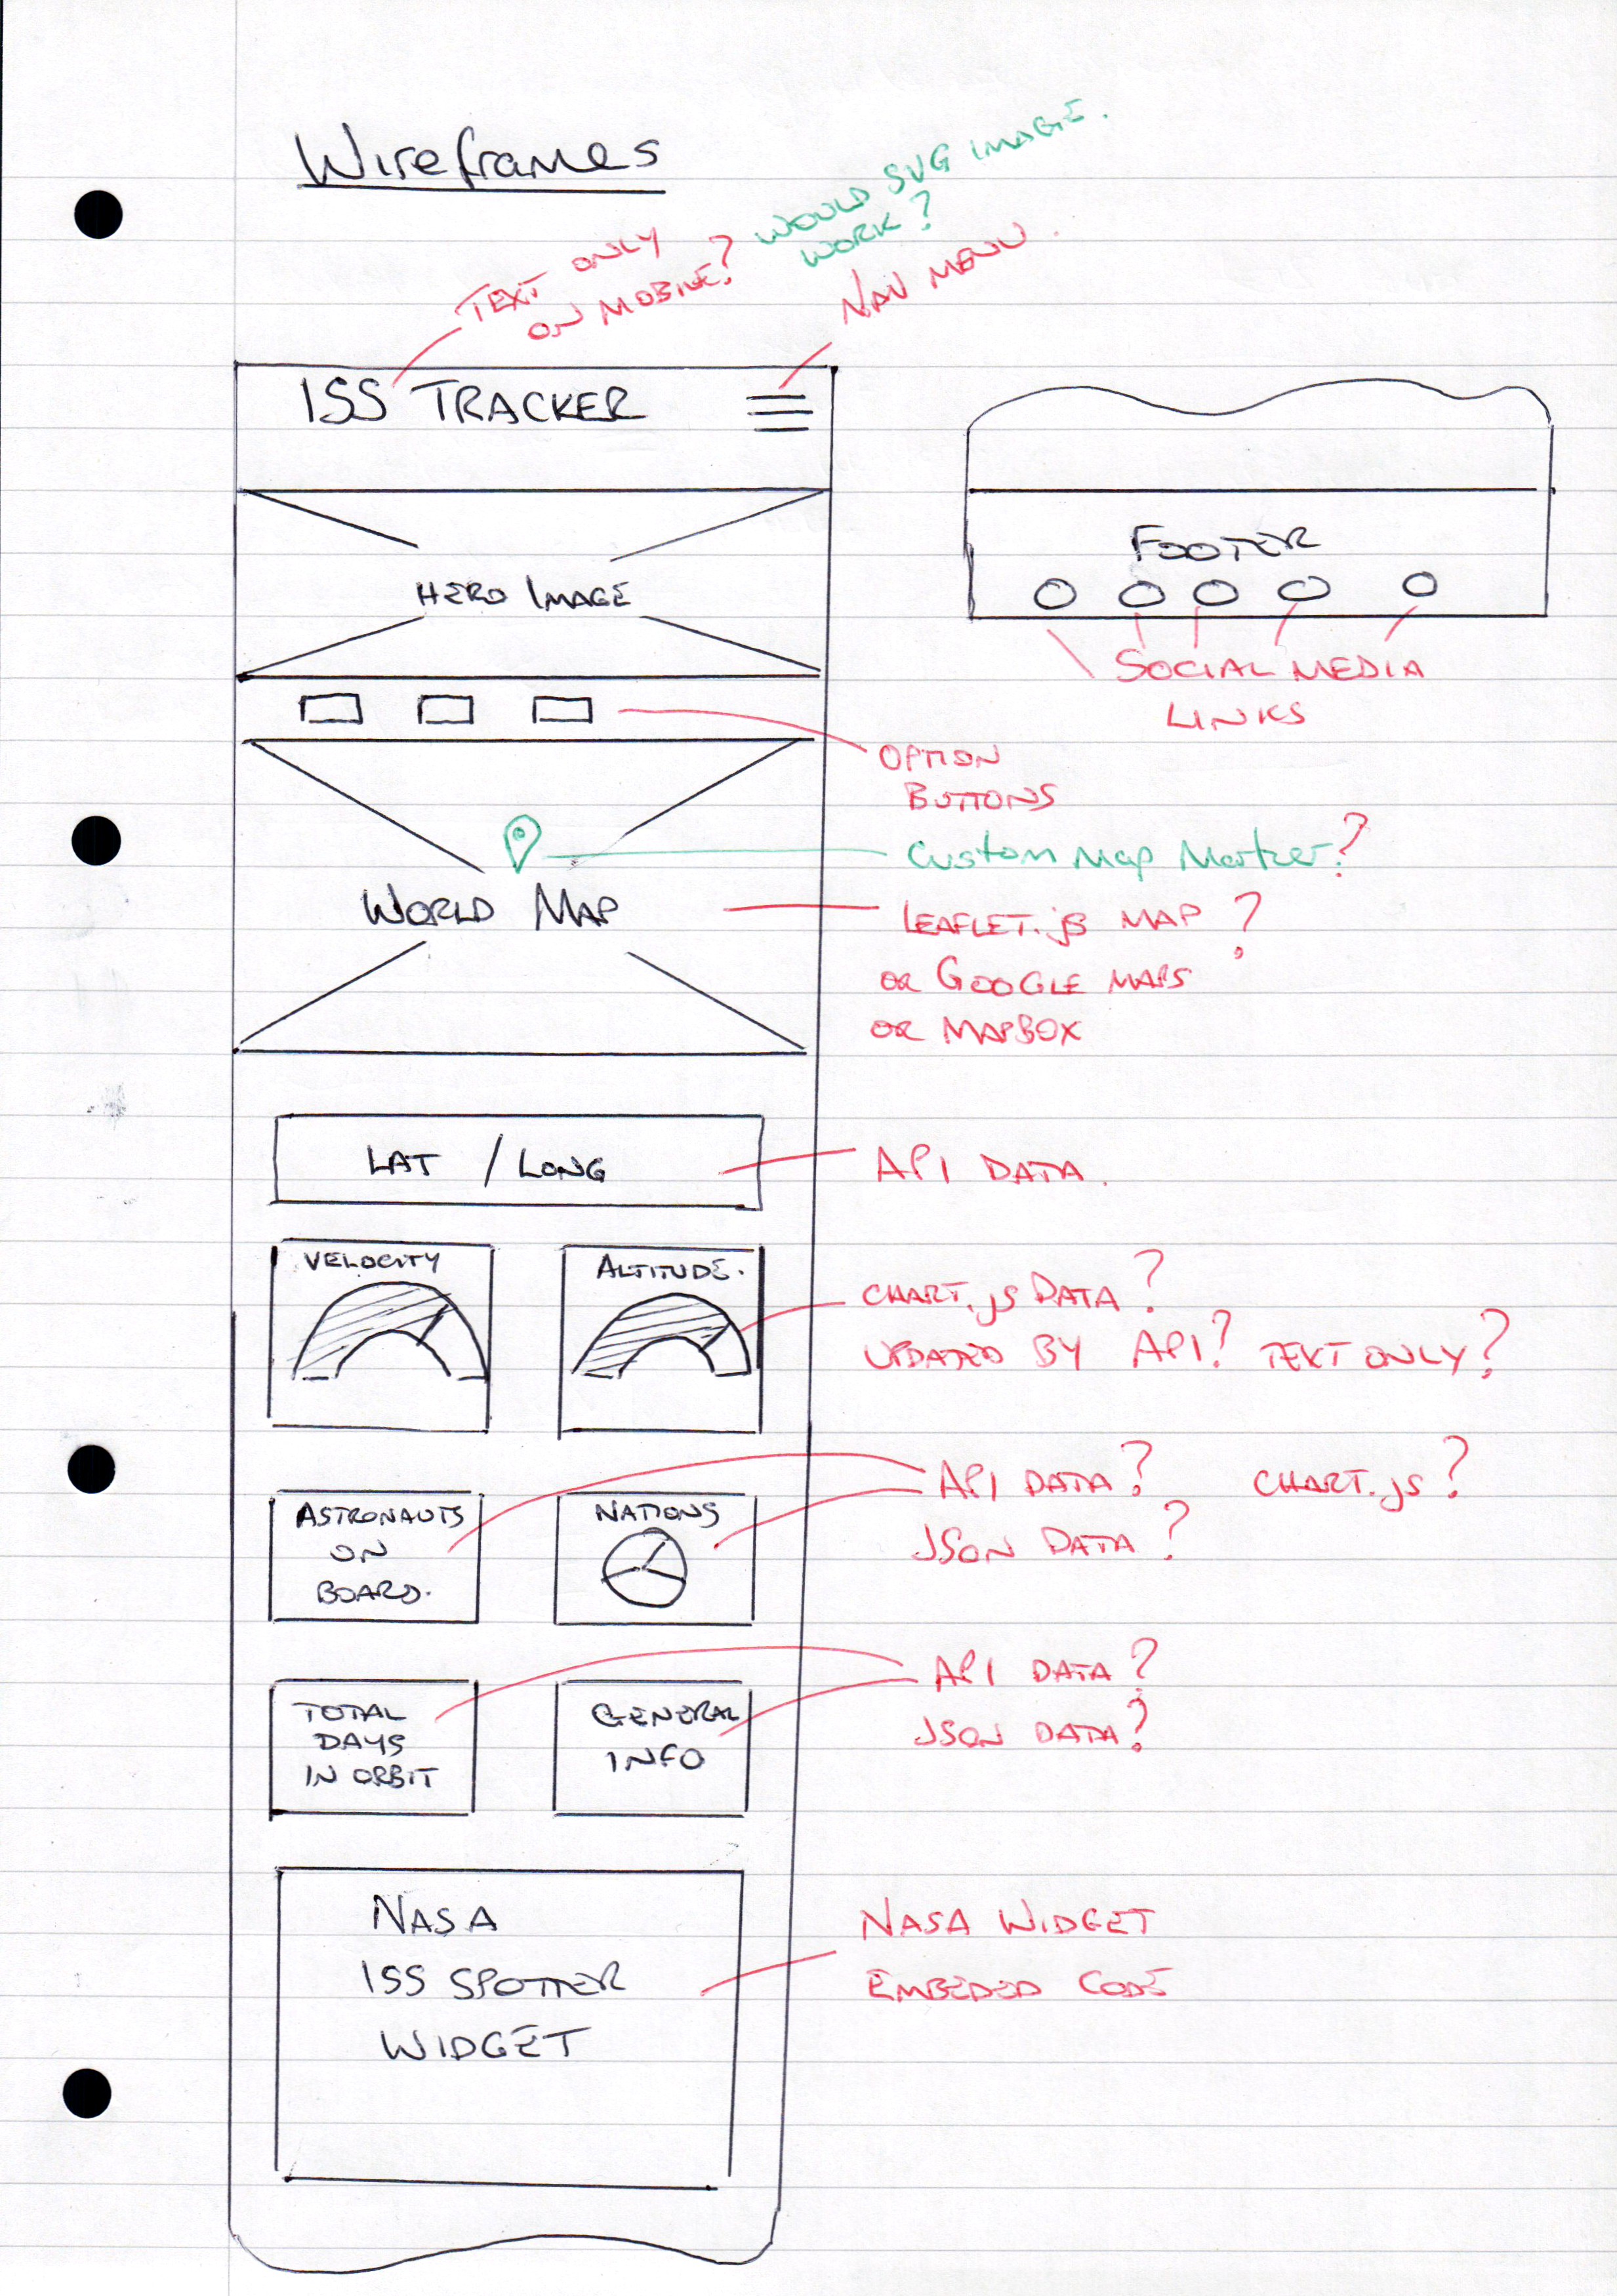 Wireframes
TEXT ONLY
ON MOBILE?
WOULD SVG IMAGE.
WORK?
NAV MENU.
ISS TRACKER
HERO IMAGE
FOOTER
SOCIAL MEDIA
LINKS
OPTION
BUTTONS
Custom Map Marker?
WORLD MAP
LEAFLET.js MAP ?
OR GOOGLE MAPS
OR MAPBOX
LAT / LONG
API DATA.
VELOCITY
ALTITUDE.
CHART.js DATA?
UPDATED BY API? TEXT ONLY?
ASTRONAUTS
ON
BOARD.
NATIONS
API DATA? CHART.js?
JSON DATA?
TOTAL
DAYS
IN ORBIT
GENERAL
INFO
API DATA?
JSON DATA?
NASA
ISS SPOTTER
WIDGET
NASA WIDGET
EMBEDED CODE